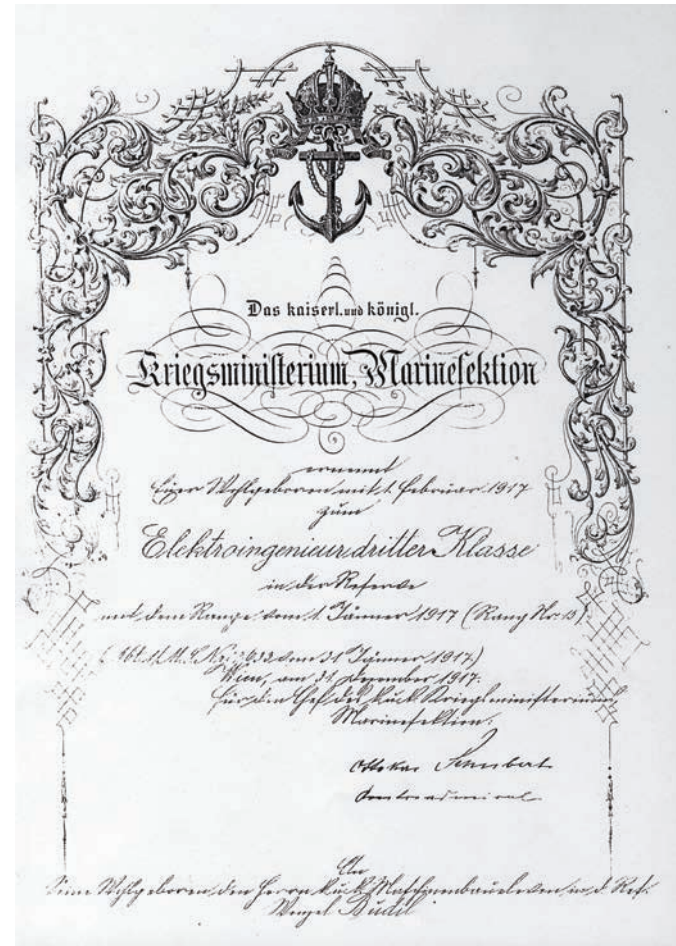 Das kaiserl. und königl.
Kriegsministerium, Marinesektion
ernennt
Euer Wohlgeboren mit 1. Februar 1917
zum
Elektroingenieur dritter Klasse
in der Reserve
mit dem Range vom 1. Jänner 1917 (Rang Nr. 13)
vom 31 Jänner 1917.)
Wien, am 31. Dezember 1917.
Für den Chef des k.u.k. Kriegsministeriums,
Marinesektion:
Ottokar Schubert
Kontreadmiral
An
Seine Wohlgeboren den Herrn k.u.k. Maschinenbaueleven in d. Res.
Wenzel Budil